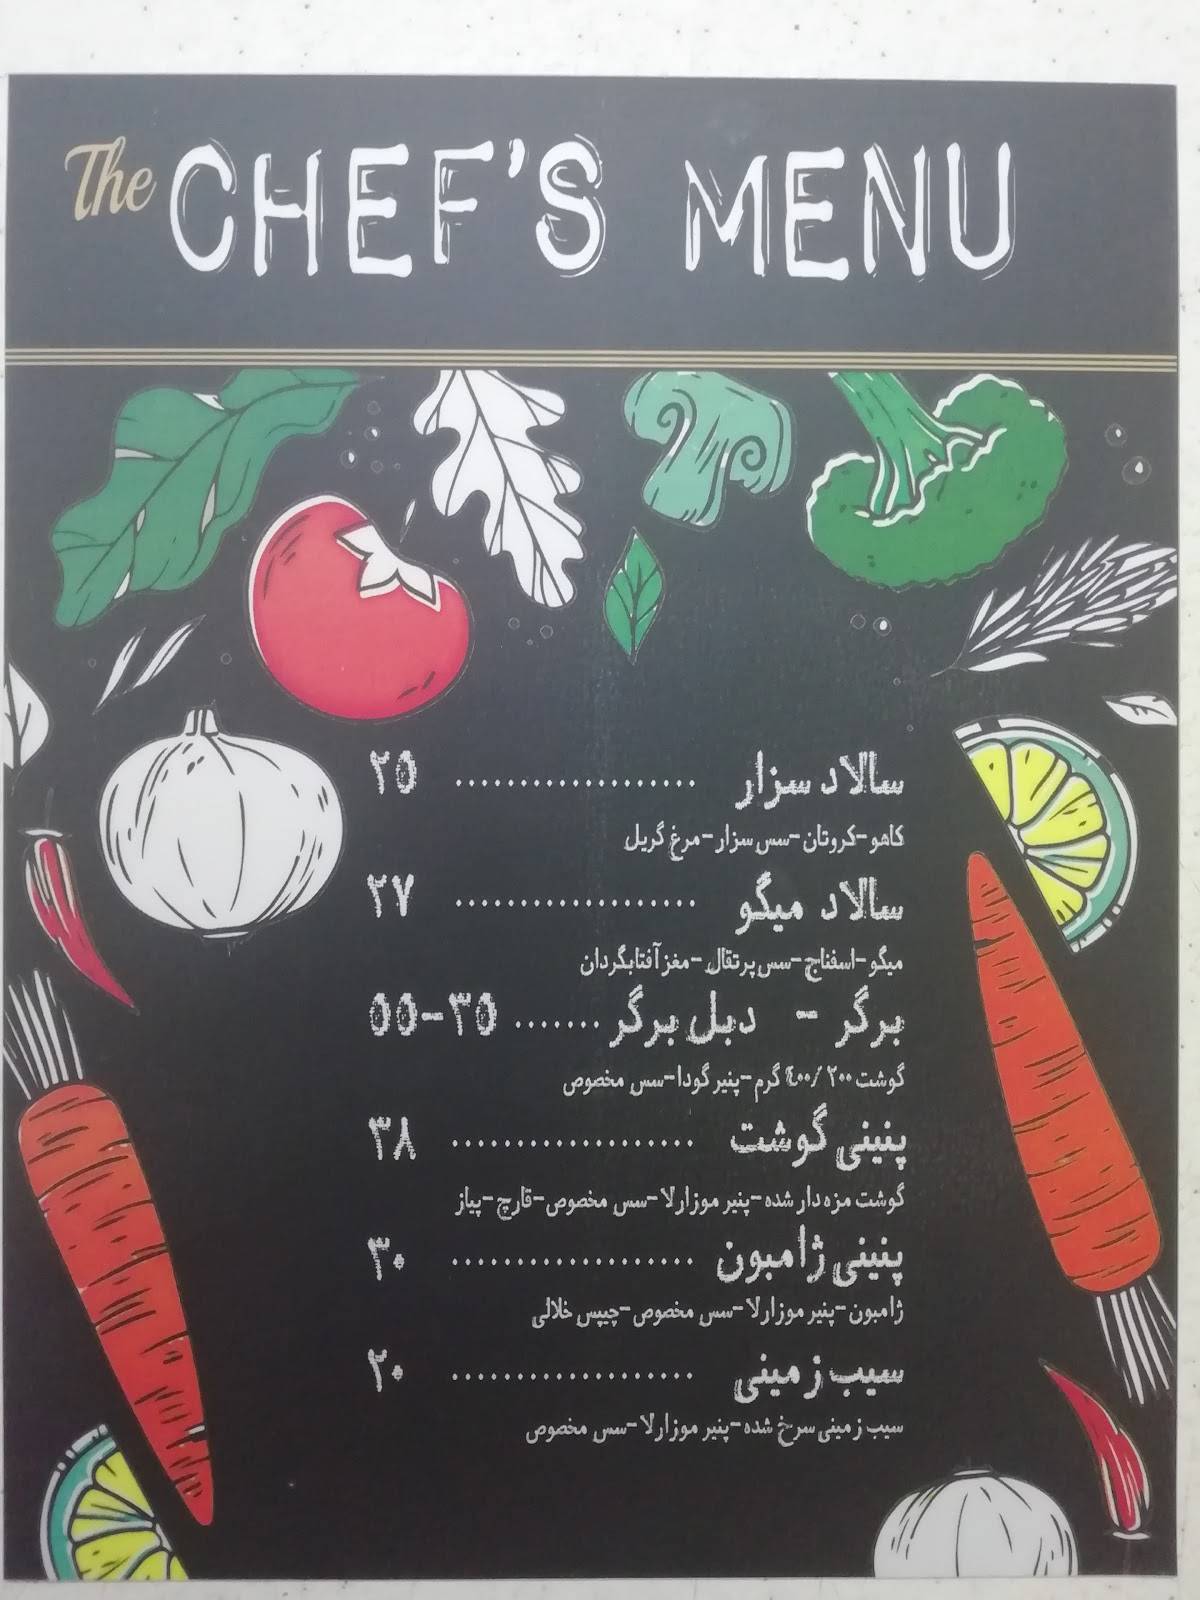 The CHEF'S MENU
سالاد سزار ................... ۲۵
کاهو-کروتان-سس سزار-مرغ گریل
سالاد میگو ................... ۲۷
میگو-اسفناج-سس پرتقال-مغز آفتابگردان
برگر - دبل برگر ....... ۳۵-۵۵
گوشت ۲۰۰ /٤۰۰ گرم-پنیر گودا-سس مخصوص
پنینی گوشت ................... ۳۸
گوشت مزه دار شده-پنیر موزارلا-سس مخصوص-قارچ-پیاز
پنینی ژامبون ................... ۳۰
ژامبون-پنیر موزارلا-سس مخصوص-چیپس خلالی
سیب زمینی ................... ۲۰
سیب زمینی سرخ شده-پنیر موزارلا-سس مخصوص